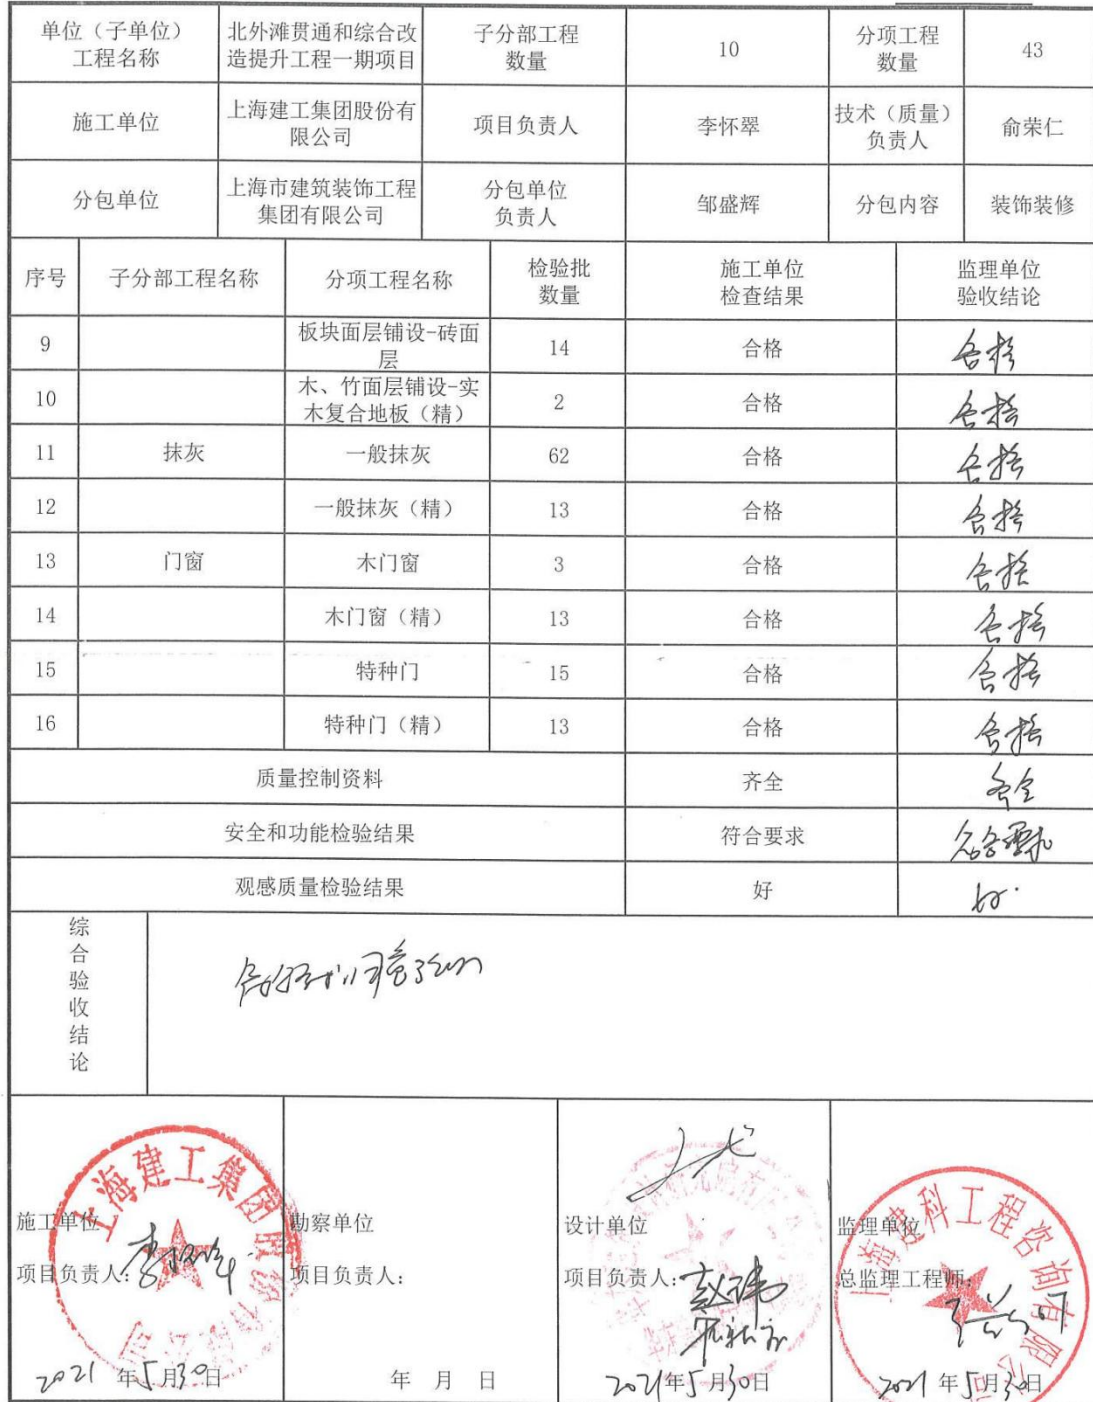 单位（子单位）
工程名称
北外滩贯通和综合改
造提升工程一期项目
子分部工程
数量
10
分项工程
数量
43
施工单位
上海建工集团股份有
限公司
项目负责人
李怀翠
技术（质量）
负责人
俞荣仁
分包单位
上海市建筑装饰工程
集团有限公司
分包单位
负责人
邹盛辉
分包内容
装饰装修
序号
子分部工程名称
分项工程名称
检验批
数量
施工单位
检查结果
监理单位
验收结论
9
板块面层铺设-砖面
层
14
合格
合格
10
木、竹面层铺设-实
木复合地板（精）
2
合格
合格
11
抹灰
一般抹灰
62
合格
合格
12
一般抹灰（精）
13
合格
合格
13
门窗
木门窗
3
合格
合格
14
木门窗（精）
13
合格
合格
15
特种门
15
合格
合格
16
特种门（精）
13
合格
合格
质量控制资料
齐全
齐全
安全和功能检验结果
符合要求
符合要求
观感质量检验结果
好
好.
综
合
验
收
结
论
上海建工集团股份有限公司
施工单位
项目负责人：
2021年5月30日
勘察单位
项目负责人：
年 月 日
设计单位
项目负责人：
2021年5月30日
上海建科工程咨询有限公司
监理单位
总监理工程师：
2021年5月30日